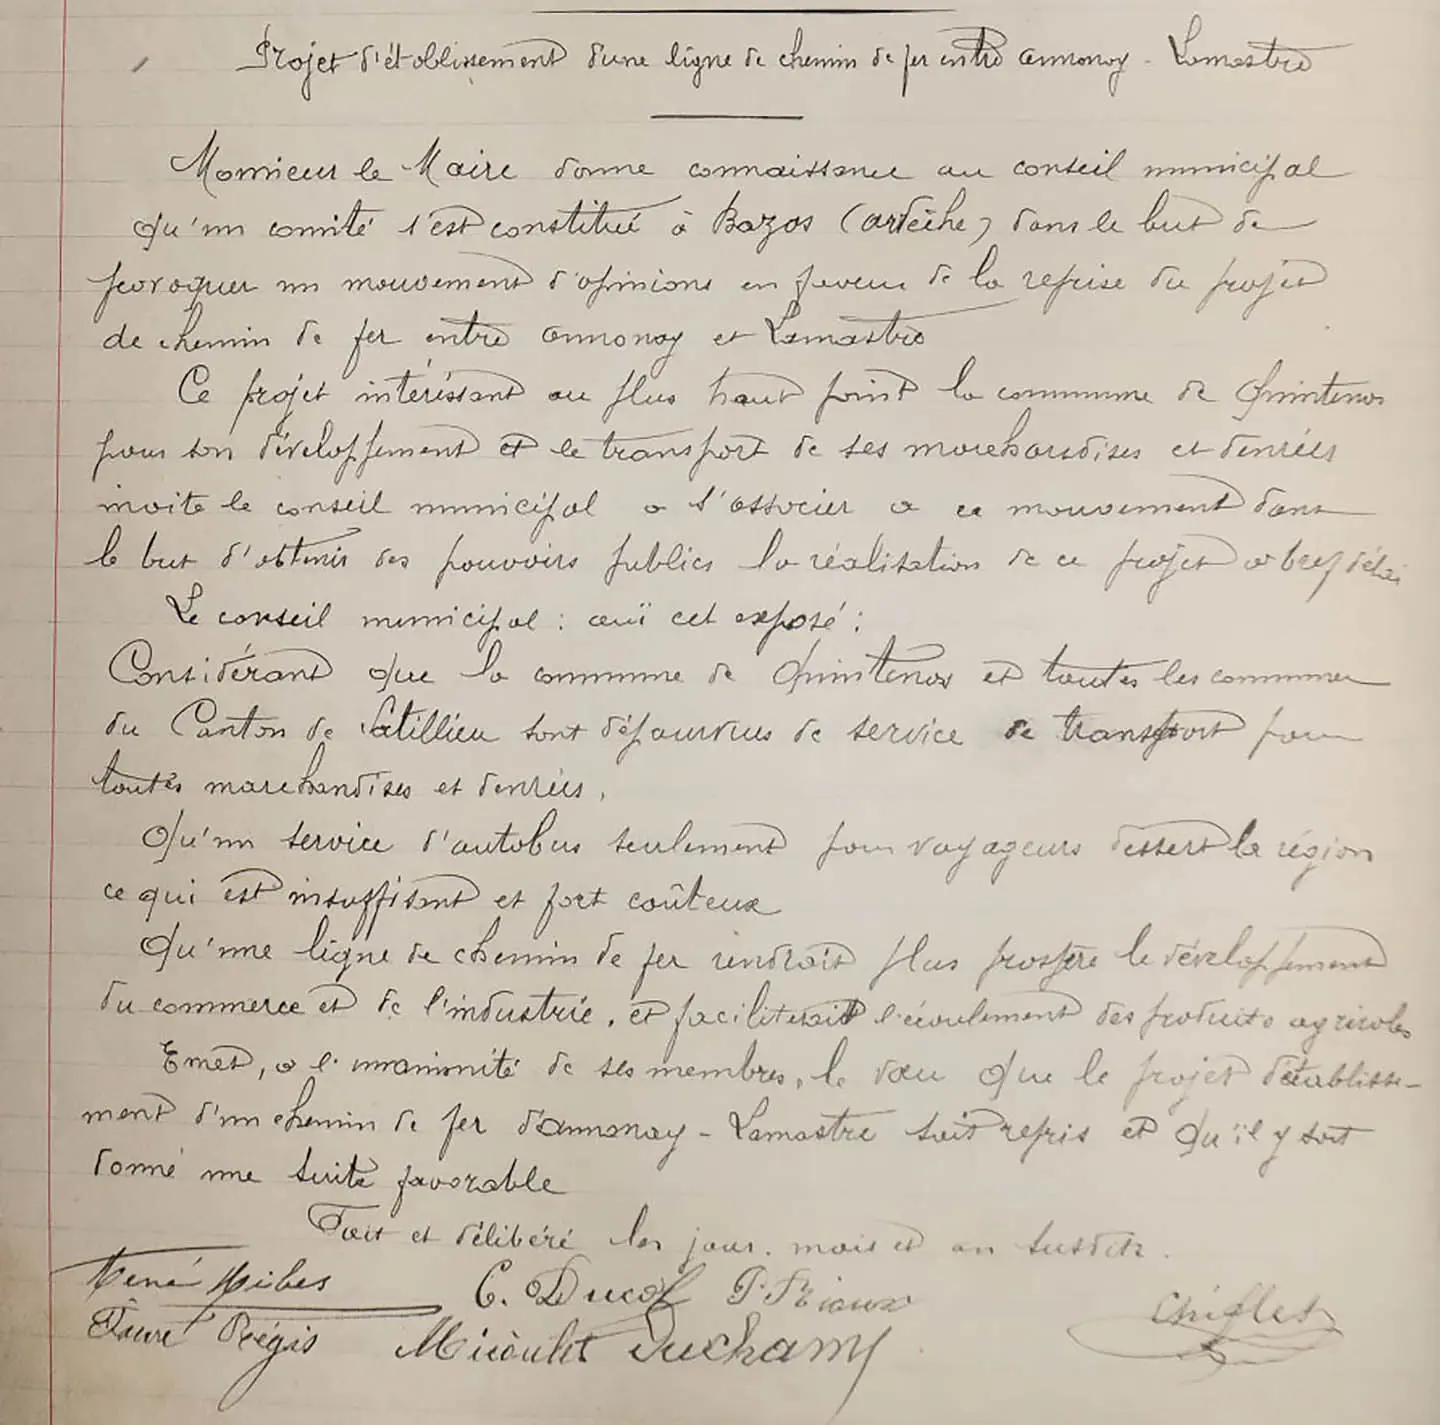 Projet d'établissement d'une ligne de chemin de fer entre Annonay - Lamastre
Monsieur le Maire donne connaissance au conseil municipal
qu'un comité s'est constitué à Bozas (Ardèche) dans le but de
provoquer un mouvement d'opinions en faveur de la reprise du projet
de chemin de fer entre Annonay et Lamastre
Ce projet intéressant au plus haut point la commune de Quintenas
pour son développement et le transport de ses marchandises et denrées
invite le conseil municipal a s'associer a ce mouvement dans
le but d'obtenir des pouvoirs publics la réalisation de ce projet a bref délai
Le conseil municipal : ouï cet exposé :
Considérant que la commune de Quintenas et toutes les communes
du Canton de Satillieu sont dépourvus de service de transport pour
toutes marchandises et denrées.
Qu'un service d'autobus seulement pour voyageurs dessert la région
ce qui est insuffisant et fort coûteux
Qu'une ligne de chemin de fer rendrait plus prospère le développement
du commerce et de l'industrie, et faciliterait l'écoulement des produits agricoles
Emet, a l'unanimité de ses membres, le vœu que le projet d'établisse-
ment d'un chemin de fer d'Annonay - Lamastre soit repris et qu'il y soit
donné une suite favorable
Fait et délibéré les jour. mois et an susdits.
René C. Ducol P. Rioux Chiflet
Faure Régis Micoulet Duchamp